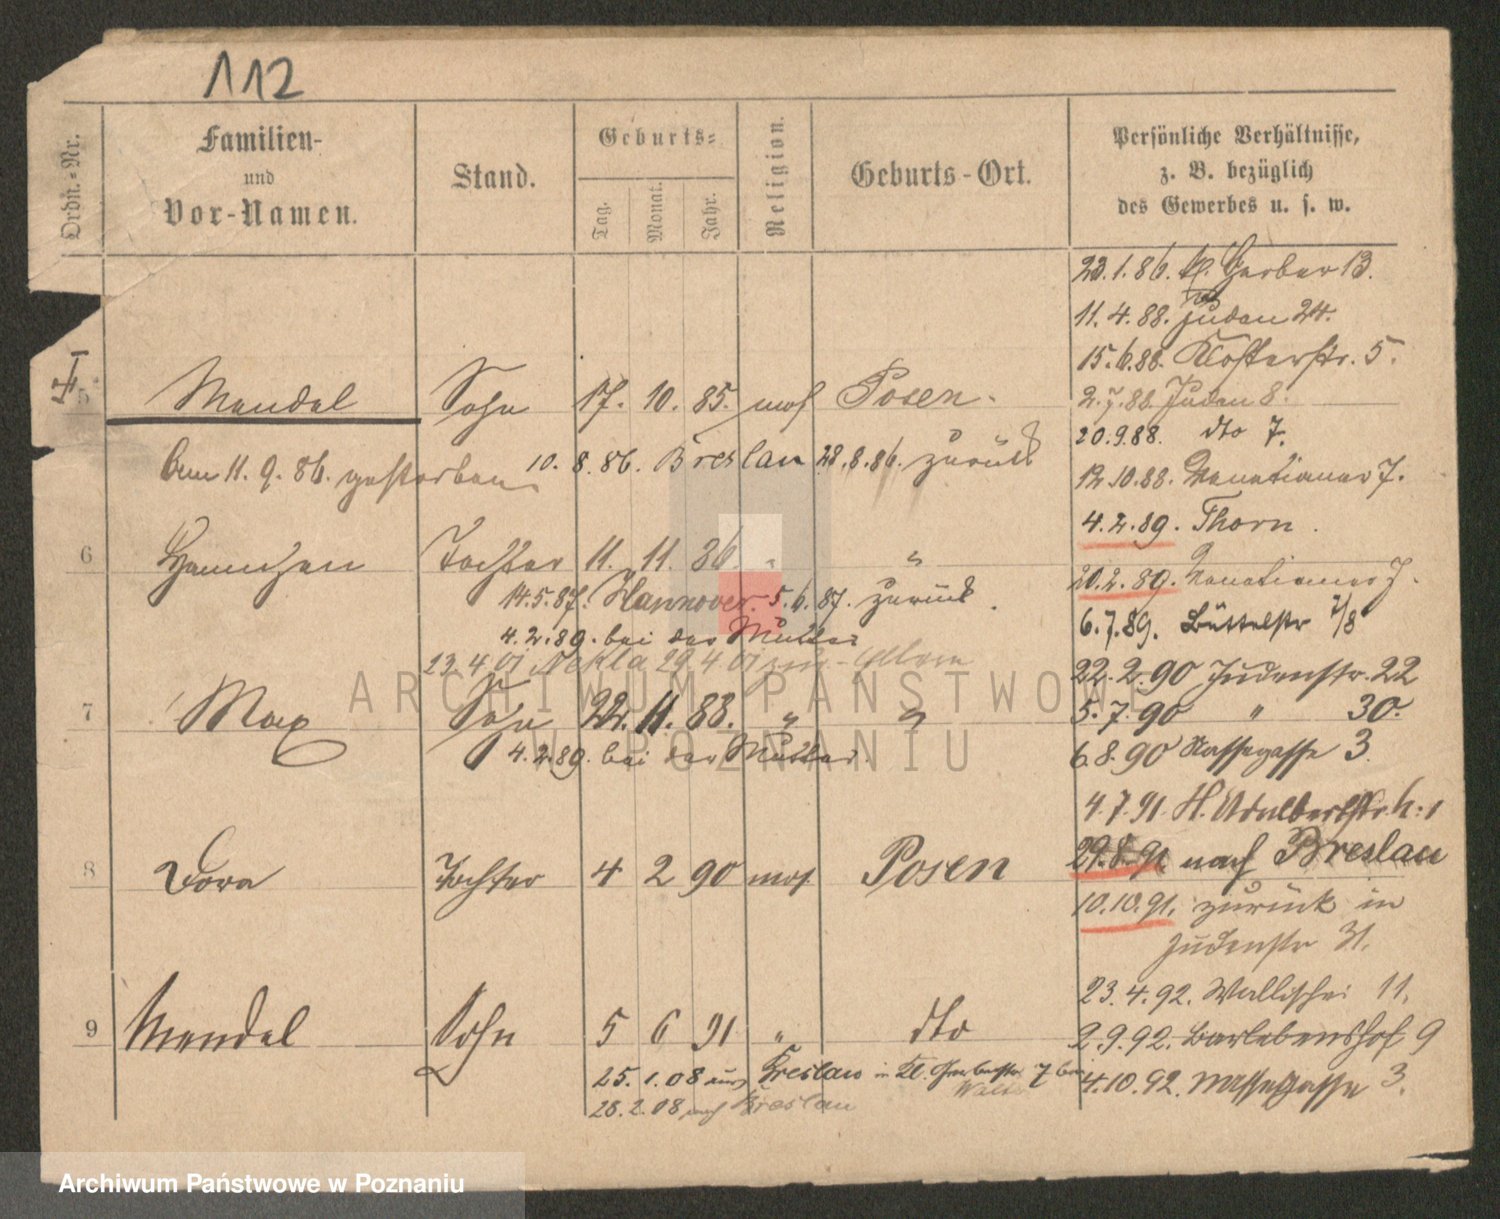 112
Ordn.-Nr.
Familien-
und
Vor-Namen.
Stand.
Geburts-
Tag.
Monat.
Jahr.
Religion.
Geburts-Ort.
Persönliche Verhältnisse,
z. B. bezüglich
des Gewerbes u. s. w.
23.1.86. kl. Gerber 13.
11.4.88. Juden 24.
15.6.88. Klosterstr. 5.
5 Mendel Sohn 17. 10. 85. mos Posen.
2.7.88. Juden 8.
20.9.88. dto 7.
Am 11.9.86. gestorben 10. 8. 86. Breslau 28.8.86. zurück
12.10.88. Venetianer 7.
4.2.89. Thorn.
6 Hannchen Tochter 11. 11. 86. " "
20.2.89. Venetianer 7.
14.5.87. Hannover. 5.6.87. zurück.
6.7.89. Büttelstr 7/8
4.2.89. bei der Mutter
23.4.01 Nekla 29.4.01 zur. Eltern
22.2.90 Judenstr. 22
7 Max Sohn 22. 11. 88. " "
5.7.90 " 30.
4.2.89. bei der Mutter.
6.8.90 Nassegasse 3.
4.7.91. H. Adalbertstr.
29.8.91 nach Breslau
8 Dora Tochter 4 2 90 mos. Posen
10.10.91. zurück in
Judenstr 31.
23.4.92. Wallischei 11.
9 Mendel Sohn 5 6 91 " dto
2.9.92. Barlebenshof 9
25. 1. 08 aus Breslau in Kl. Gerberstr 7 bei
4.10.92. Nassegasse 3.
28. 2. 08 nach Breslau
ARCHIWUM PAŃSTWOWE
W POZNANIU
Archiwum Państwowe w Poznaniu